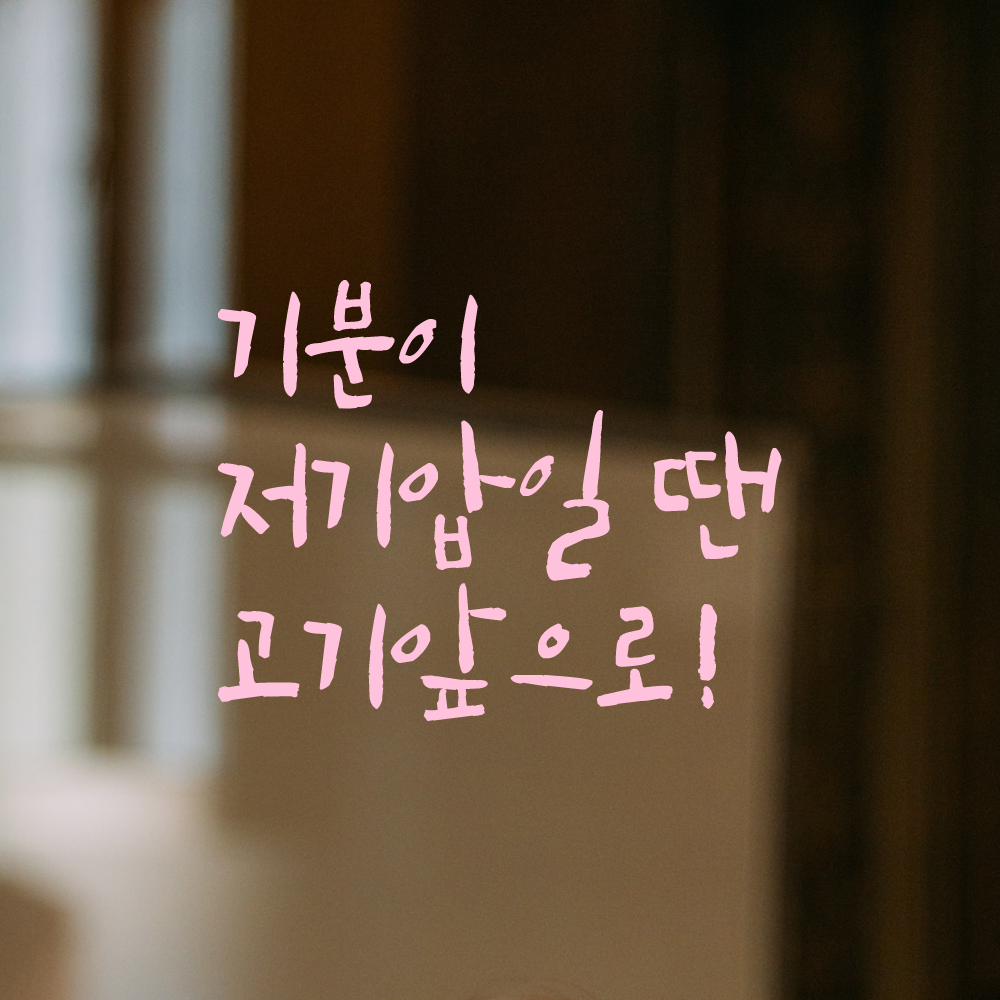 기분이
저기압일 땐
고기앞으로!